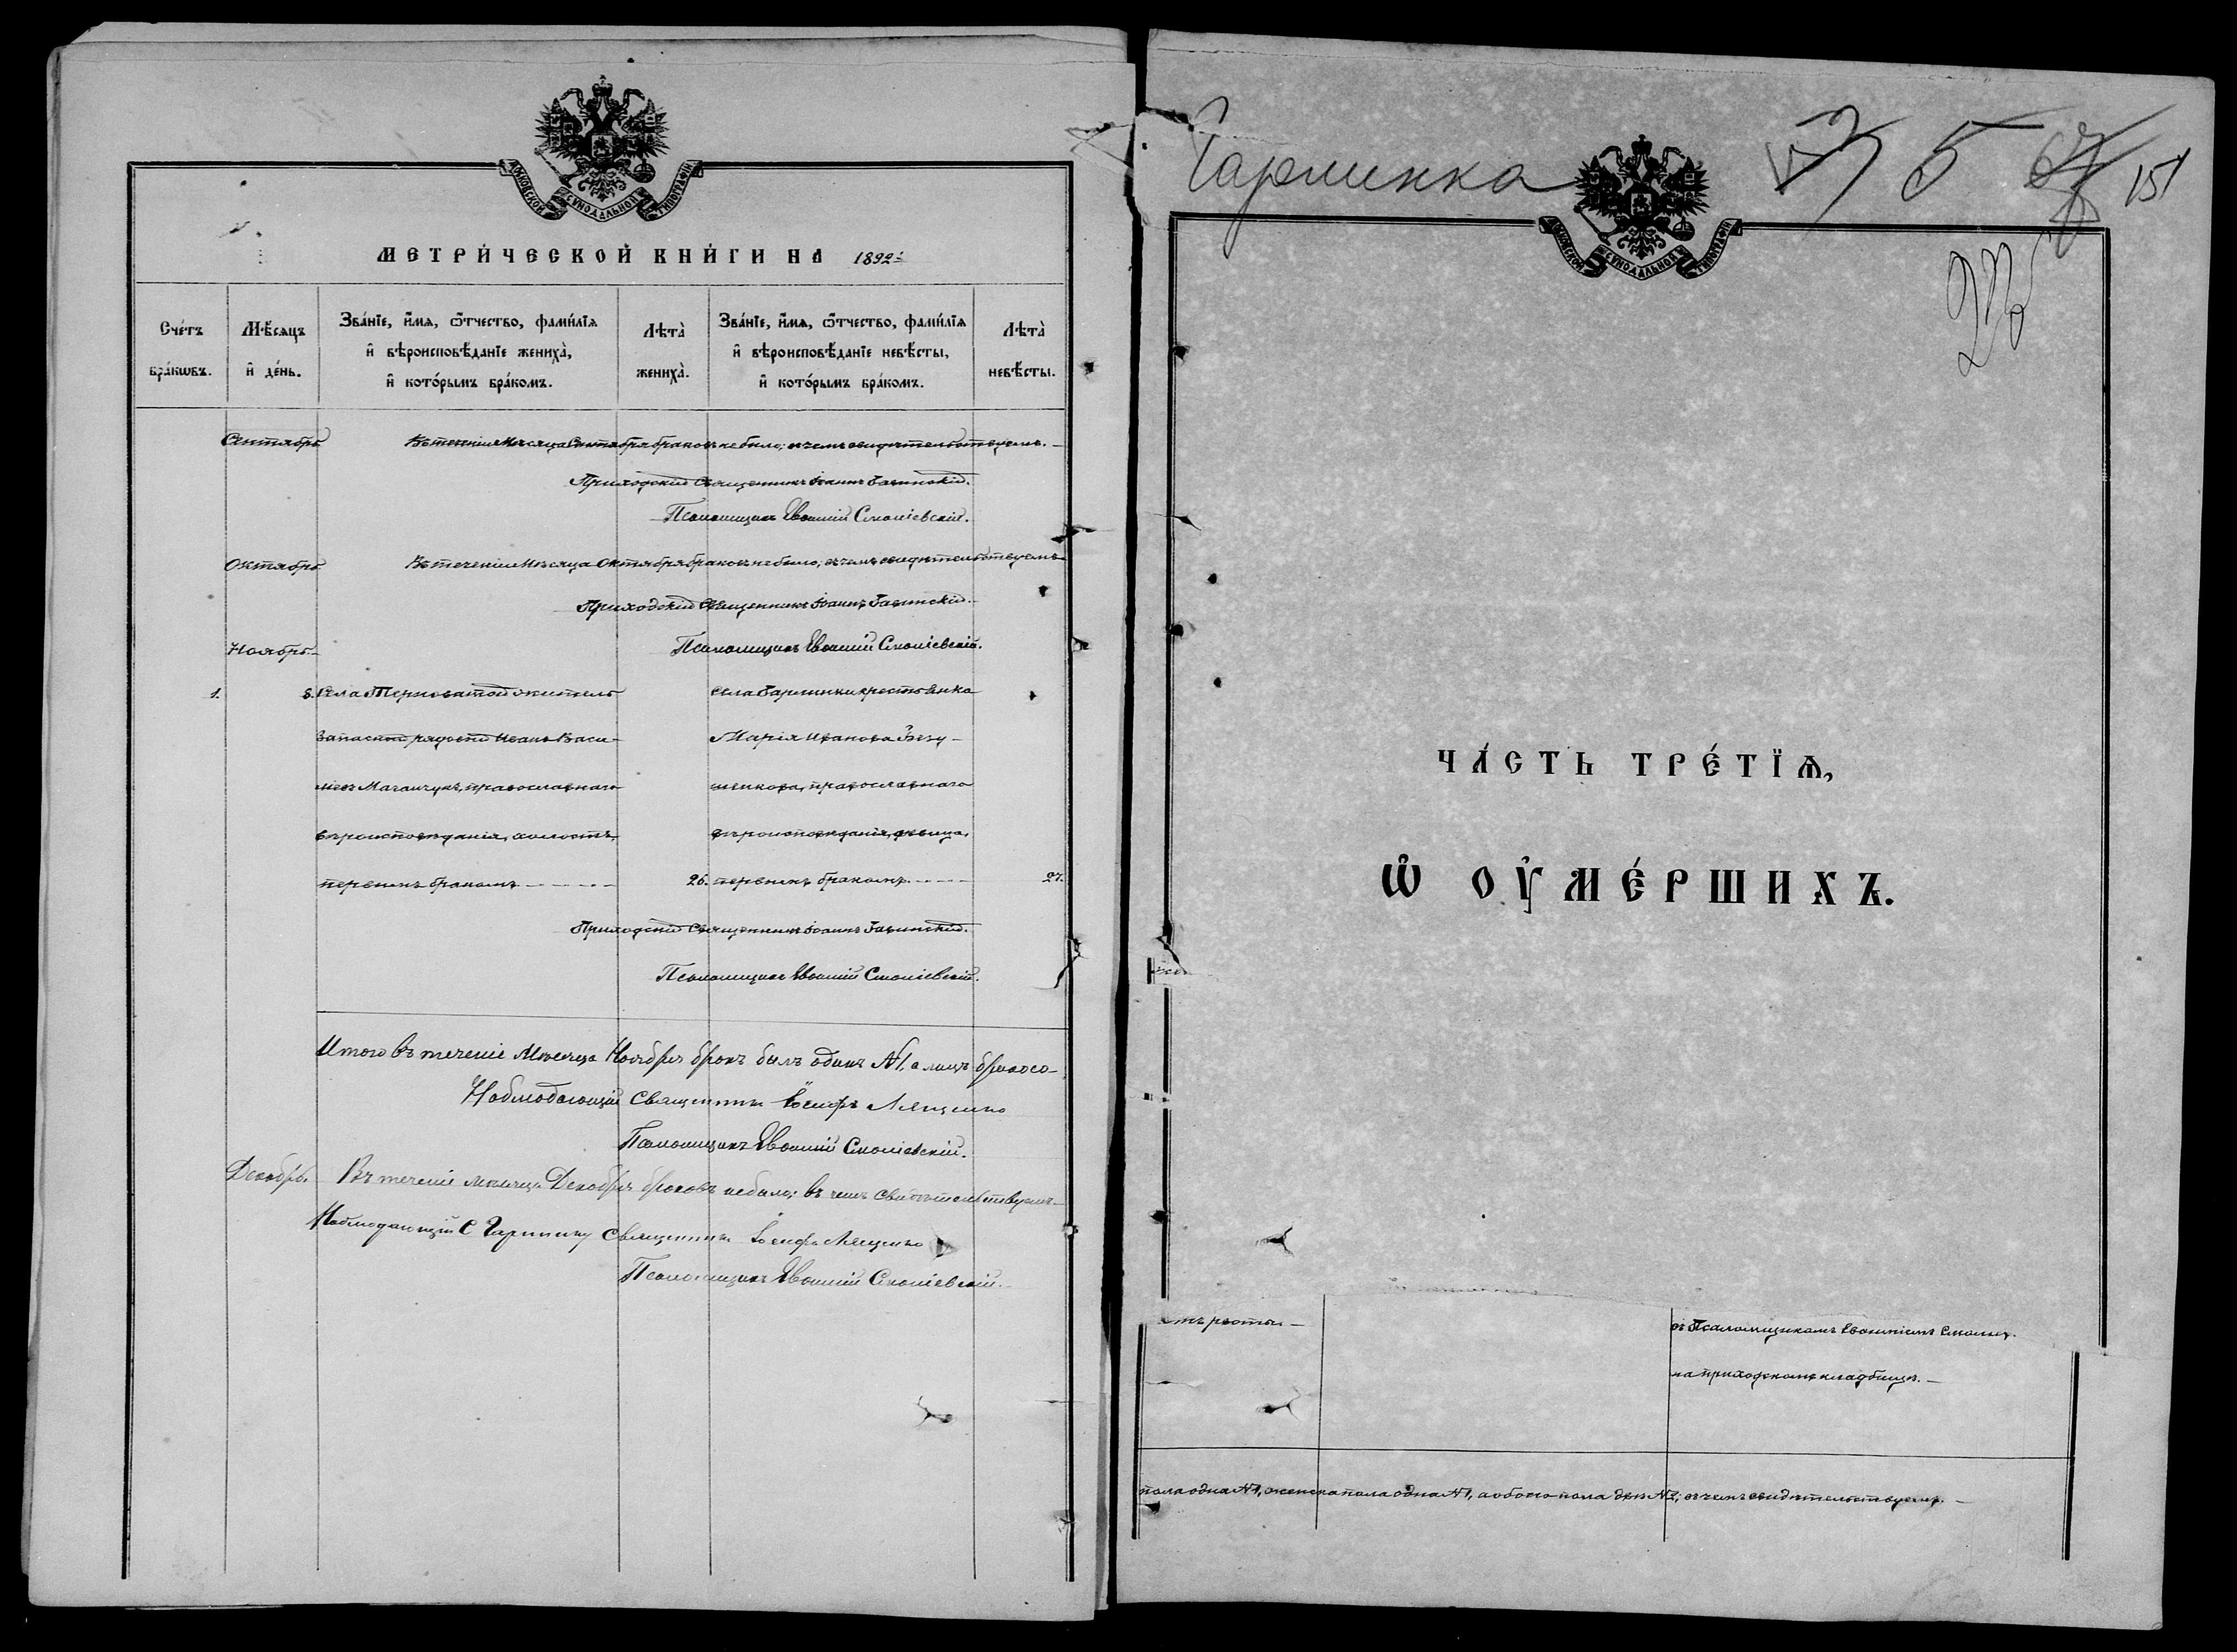 МОСКОВСКОЙ СѴНОДАЛЬНОЙ ТИПОГРАФІИ
МЕТРИ́ЧЕСКОЙ КНИ́ГИ НА 1892 г.
Сче́тъ бра́кѡвъ.
Мѣ́сяцъ и҆ де́нь.
Зва́нїе, и҆́мѧ, ѻ҆́тчество, фами́лїѧ и҆ вѣроисповѣ́данїе женихà, и҆ кото́рымъ бра́комъ.
Лѣтà женихà.
Зва́нїе, и҆́мѧ, ѻ҆́тчество, фами́лїѧ и҆ вѣроисповѣ́данїе невѣ́сты, и҆ кото́рымъ бра́комъ.
Лѣтà невѣ́сты.
Сентябрь Въ теченіи мѣсяца Сентября браковъ не было; въ чемъ свидѣтельствуемъ.
Приходскій Священникъ Іоаннъ
Псаломщикъ Евѳимій Смоліевскій.
Октябрь Въ теченіи мѣсяца Октября браковъ не было; въ чемъ свидѣтельствуемъ
Приходскій Священникъ Іоаннъ
Псаломщикъ Евѳимій Смоліевскій.
Ноябрь.
1. 8. Села Терноватой житель
запасной рядовой Иванъ Васи-
православнаго
вѣроисповѣданія, холостъ,
первымъ бракомъ 26.
села Гаршинки крестьянка
Марія Иванова
православнаго
вѣроисповѣданія, дѣвица,
первымъ бракомъ 27.
Приходскій Священникъ Іоаннъ
Псаломщикъ Евѳимій Смоліевскій.
Итого въ теченіе мѣсяца Ноября бракъ былъ одинъ №1, а лицъ
Наблюдающій Священникъ Іосифъ
Псаломщикъ Евѳимій Смоліевскій.
Декабрь. Въ теченіе мѣсяца Декабря браковъ не было; въ чемъ свидѣтельствуемъ
Наблюдающій С. Священникъ Іосифъ
Псаломщикъ Евѳимій Смоліевскій.
5 151
МОСКОВСКОЙ СѴНОДАЛЬНОЙ ТИПОГРАФІИ
ЧА́СТЬ ТРЕ́ТЇѦ,
Ѡ҆ ОУ҆МЕ́РШИХЪ.
съ Псаломщикомъ Евѳиміемъ
на приходскомъ кладбищѣ.
пола одна №1, женска пола одна №1, а обоего пола двѣ №2; въ чемъ свидѣтельствуемъ.